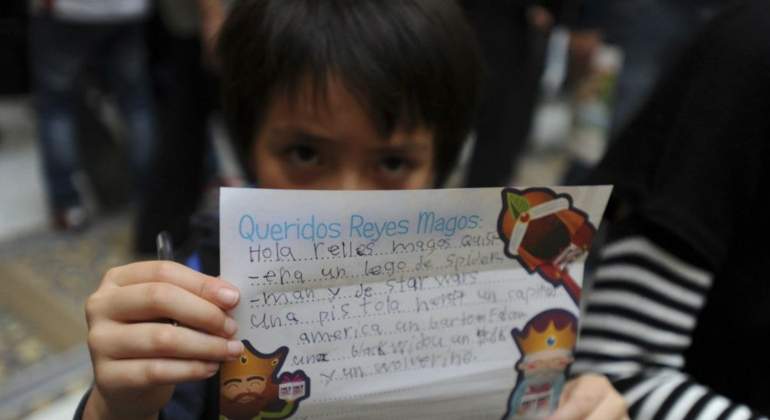 Queridos Reyes Magos:
Hola relles magos quisi
-era un lego de spider
-man y de star wars
una pistola nerf un capitan
america un
una black widow un
y un wolverine.